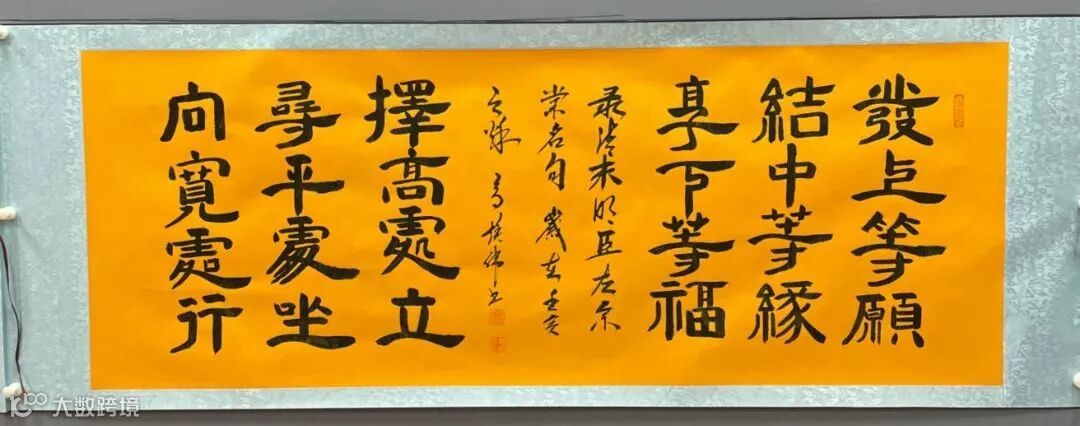 發上等願
結中等緣
享下等福
录清末明臣左宗
棠名句 歲在壬
之秋 高 书
擇高處立
尋平處坐
向寬處行
大数跨境